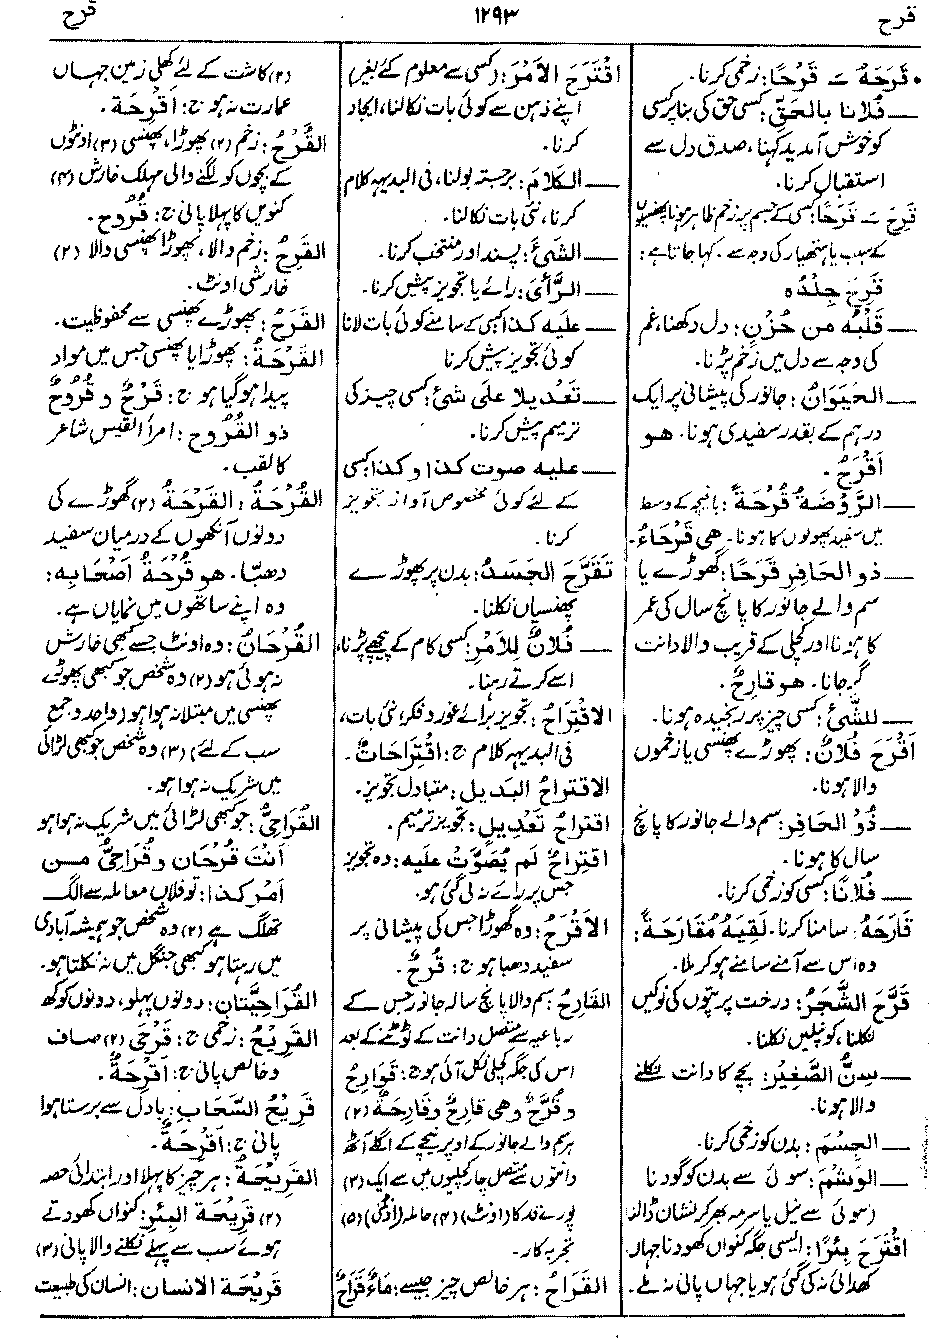 قرح
۱۲۹۳
قرح
• قَرَحَهُ ـَ قَرْحًا: زخمی کرنا۔
— فُلانًا بالحَقِّ: کسی حق کی بنا پر کسی
کو خوش آمدید کہنا، صدق دل سے
استقبال کرنا۔
قَرِحَ ـَ قَرَحًا: کسی کے جسم پر زخم ظاہر ہونا پھنسیوں
کے سبب یا ہتھیار کی وجہ سے۔ کہا جاتا ہے:
قَرِحَ جِلْدُه
— قَلْبُه من حُزْنٍ: دل دکھنا، غم
کی وجہ سے دل میں زخم پڑنا۔
— الحَيَوانُ: جانور کی پیشانی پر ایک
درہم کے بقدر سفیدی ہونا۔ هو
أقْرَحُ۔
— الرَّوْضَةُ قُرْحَةً: باغیچہ کے وسط
میں سفید پھولوں کا ہونا۔ هی قَرْحَاءُ۔
— ذو الحَافِرِ قَرَحًا: گھوڑے یا
سم والے جانور کا پانچ سال کی عمر
کا ہونا اور کچلی کے قریب والا دانت
گر جانا۔ هو قَارِحٌ۔
— للشَّئ: کسی چیز پر رنجیدہ ہونا۔
أقْرَحَ فُلانٌ: پھوڑے پھنسی یا زخموں
والا ہونا۔
— ذُو الحَافِرِ: سم والے جانور کا پانچ
سال کا ہونا۔
— فُلانًا: کسی کو زخمی کرنا۔
قَارَحَهُ: سامنا کرنا۔ لَقِيَهُ مُقَارَحَةً:
وہ اس سے آمنے سامنے ہو کر ملا۔
قَرَّحَ الشَّجَرُ: درخت پر پتوں کی نوکیں
نکلنا، کونپلیں نکلنا۔
— سِنُّ الصَّغِيْرِ: بچے کا دانت نکلنے
والا ہونا۔
— الجِسْمَ: بدن کو زخمی کرنا۔
— الوَشْمَ: سوئی سے بدن کو گودنا
(سوئی سے نیل یا سرمہ بھر کر نشان ڈالنا)
اقْتَرَحَ بِئْرًا: ایسی جگہ کنواں کھودنا جہاں
کھدائی نہ کی گئی ہو یا جہاں پانی نہ ملے۔
اقْتَرَحَ الأمْرَ: (کسی سے معلوم کئے بغیر)
اپنے ذہن سے کوئی بات نکالنا، ایجاد
کرنا۔
— الكَلامَ: برجستہ بولنا، فی البدیہہ کلام
کرنا، نئی بات نکالنا۔
— الشَّئَ: پسند اور منتخب کرنا۔
— الرَّأىَ: رائے یا تجویز پیش کرنا۔
— عليه كذا: کسی کے سامنے کوئی بات لانا
کوئی تجویز پیش کرنا
— تَعْدِيلا عَلى شَئٍ: کسی چیز کی
ترمیم پیش کرنا۔
— عليه صوت كذا او كذا: کسی
کے لئے کوئی مخصوص آواز تجویز
کرنا۔
تَقَرَّحَ الجَسَدُ: بدن پر پھوڑے
پھنسیاں نکلنا۔
— فُلانٌ لِلأمْرِ: کسی کام کے پیچھے پڑنا،
اسے کرتے رہنا۔
الاقْتِرَاحُ: تجویز برائے غور و فکر، نئی بات،
فی البدیہہ کلام ج: اقْتِرَاحَاتٌ۔
الاقتراحُ البَديل: متبادل تجویز۔
اقتراحُ تَعْدِيلٍ: تجویز ترمیم۔
اقتِراحٌ لم يُصَوَّتْ عليه: وہ تجویز
جس پر رائے نہ لی گئی ہو۔
الأقْرَحُ: وہ گھوڑا جس کی پیشانی پر
سفید دھبا ہو ج: قُرْحٌ۔
القَارِحُ: سم والا پانچ سالہ جانور جس کے
رباعیہ سے متصل دانت کے ٹوٹنے کے بعد
اس کی جگہ کچلی نکل آئی ہو ج: قَوَارِحُ
و قُرَّحٌ وهی قارِحٌ و قَارِحَةٌ (۲)
ہر سم والے جانور کے اوپر نیچے کے اگلے آٹھ
دانتوں سے متصل چار کچلیوں میں سے ایک (۳)
پورے قد کا (اونٹ) (۴) حاملہ (اونٹنی) (۵)
تجربہ کار۔
القَرَاحُ: ہر خالص چیز جیسے: مَاءٌ قَرَاحٌ
(۲) کاشت کے لئے کھلی زمین جہاں
عمارت نہ ہو ج: أقْرِحَة۔
القَرْحُ: زخم (۲) پھوڑا، پھنسی (۳) اونٹوں
کے بچوں کو لگنے والی مہلک خارش (۴)
کنویں کا پہلا پانی ج: قُرُوْح۔
القَرِحُ: زخم والا، پھوڑا پھنسی والا (۲)
خارشی اونٹ۔
القَرَحُ: پھوڑے پھنسی سے محفوظیت۔
القَرْحَةُ: پھوڑا یا پھنسی جس میں مواد
پیدا ہو گیا ہو ج: قَرْحٌ و قُرُوحٌ
ذو القُرُوح: امرأ القیس شاعر
کا لقب۔
القُرْحَةُ: القَرْحَةُ (۲) گھوڑے کی
دونوں آنکھوں کے درمیان سفید
دھبا۔ هو قُرْحَةُ أصْحَابِه:
وہ اپنے ساتھیوں میں نمایاں ہے۔
القُرْحَانُ: وہ اونٹ جسے کبھی خارش
نہ ہوئی ہو (۲) وہ شخص جو کبھی پھوڑے
پھنسی میں مبتلا نہ ہوا ہو (واحد و جمع
سب کے لئے) (۳) وہ شخص جو کبھی لڑائی
میں شریک نہ ہوا ہو۔
القُرَاحِيُّ: جو کبھی لڑائی میں شریک نہ ہوا ہو
أنتَ قُرْحَان و قُرَاحِيٌّ من
أمر كذا: تو فلاں معاملہ سے الگ
تھلگ ہے (۲) وہ شخص جو ہمیشہ آبادی
میں رہتا ہو کبھی جنگل میں نہ نکلتا ہو۔
القُرَاحِيَّتَانِ: دونوں پہلو، دونوں کوکھ
القَرِيْحُ: زخمی ج: قَرْحَى (۲) صاف
و خالص پانی ج: أقْرِحَةٌ۔
قَرِيْحُ السَّحَابِ: بادل سے برستا ہوا
پانی ج: أقْرِحَةٌ۔
القَرِيْحَةُ: ہر چیز کا پہلا اور ابتدائی حصہ
(۲) قَرِيْحَة البِئْرِ: کنواں کھودتے
ہوئے سب سے پہلے نکلنے والا پانی (۳)
قَرِيْحَة الإنسان: انسان کی طبیعت